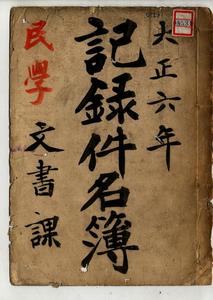 大正六年
記録件名簿
民學
文書課